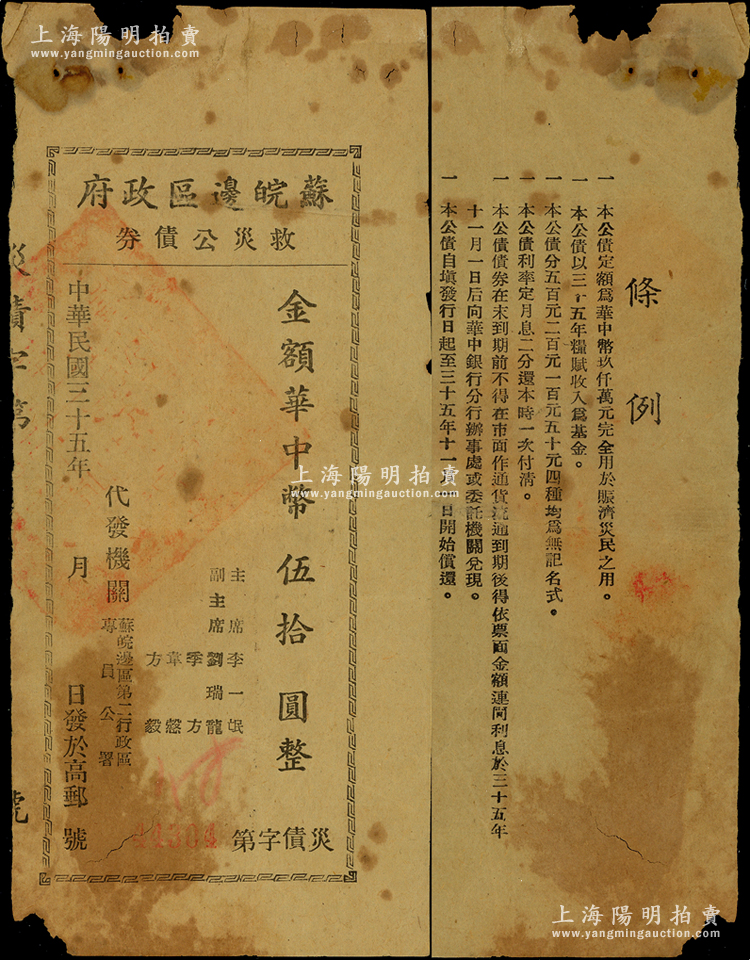 上海陽明拍賣
www.yangmingauction.com
上海陽明拍賣
www.yangmingauction.com
蘇皖邊區政府
救災公債券
金額華中幣伍拾圓整
主席李一氓
副主席劉瑞龍
季方
韋愨
方毅
代發機關
蘇皖邊區第二行政區
專員公署
中華民國三十五年 月 日發於高郵
災債字第
44304
號
災債字第 號
條例
一 本公債定額爲華中幣玖仟萬元完全用於賑濟災民之用。
一 本公債以三十五年糧賦收入爲基金。
一 本公債分五百元二百元一百元五十元四種均爲無記名式。
一 本公債利率定月息二分還本時一次付清。
一 本公債債券在未到期前不得在市面作通貨流通到期後得依票面金額連同利息於三十五年
十一月一日后向華中銀行分行辦事處或委託機關兌現。
一 本公債自填發行日起至三十五年十一月 日開始償還。
上海陽明拍賣
www.yangmingauction.com
上海陽明拍賣
www.yangmingauction.com